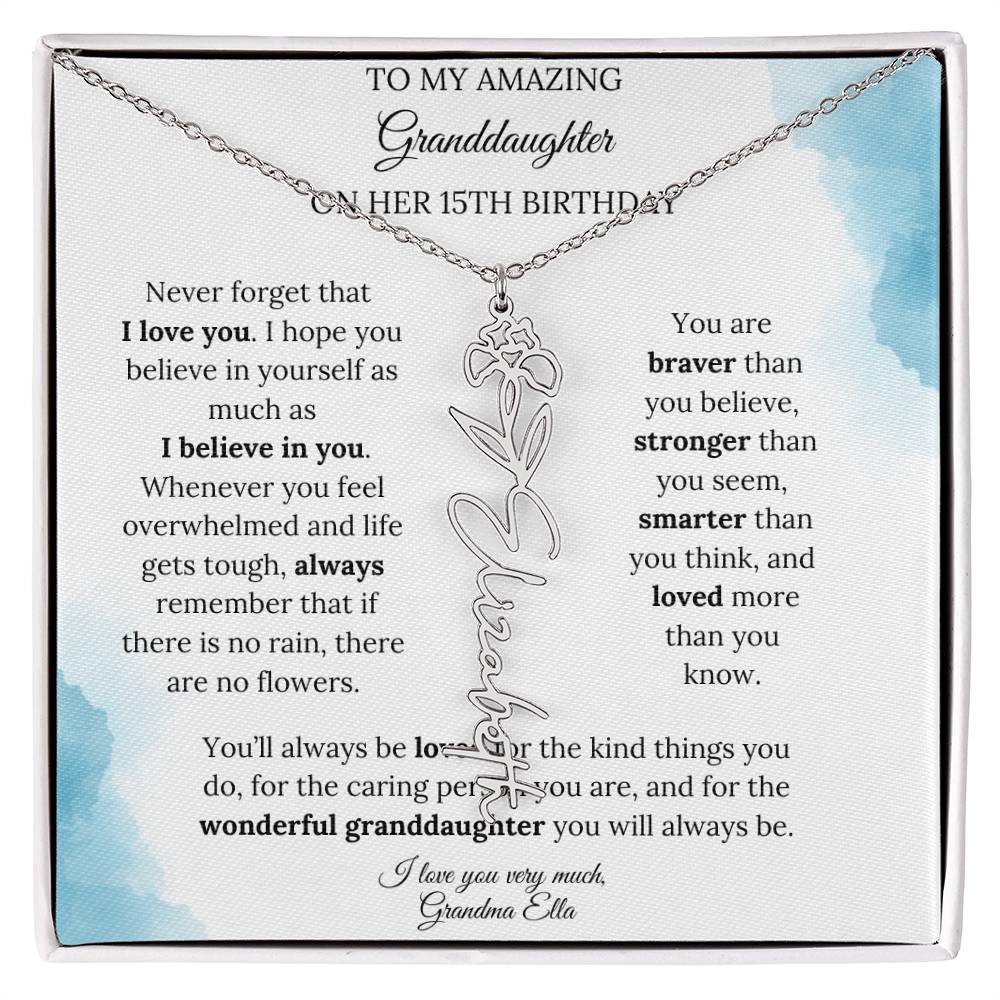 TO MY AMAZING
Granddaughter
ON HER 15TH BIRTHDAY
Never forget that
I love you. I hope you
believe in yourself as
much as
I believe in you.
Whenever you feel
overwhelmed and life
gets tough, always
remember that if
there is no rain, there
are no flowers.
You are
braver than
you believe,
stronger than
you seem,
smarter than
you think, and
loved more
than you
know.
Elizabeth
You'll always be loved for the kind things you
do, for the caring person you are, and for the
wonderful granddaughter you will always be.
I love you very much,
Grandma Ella